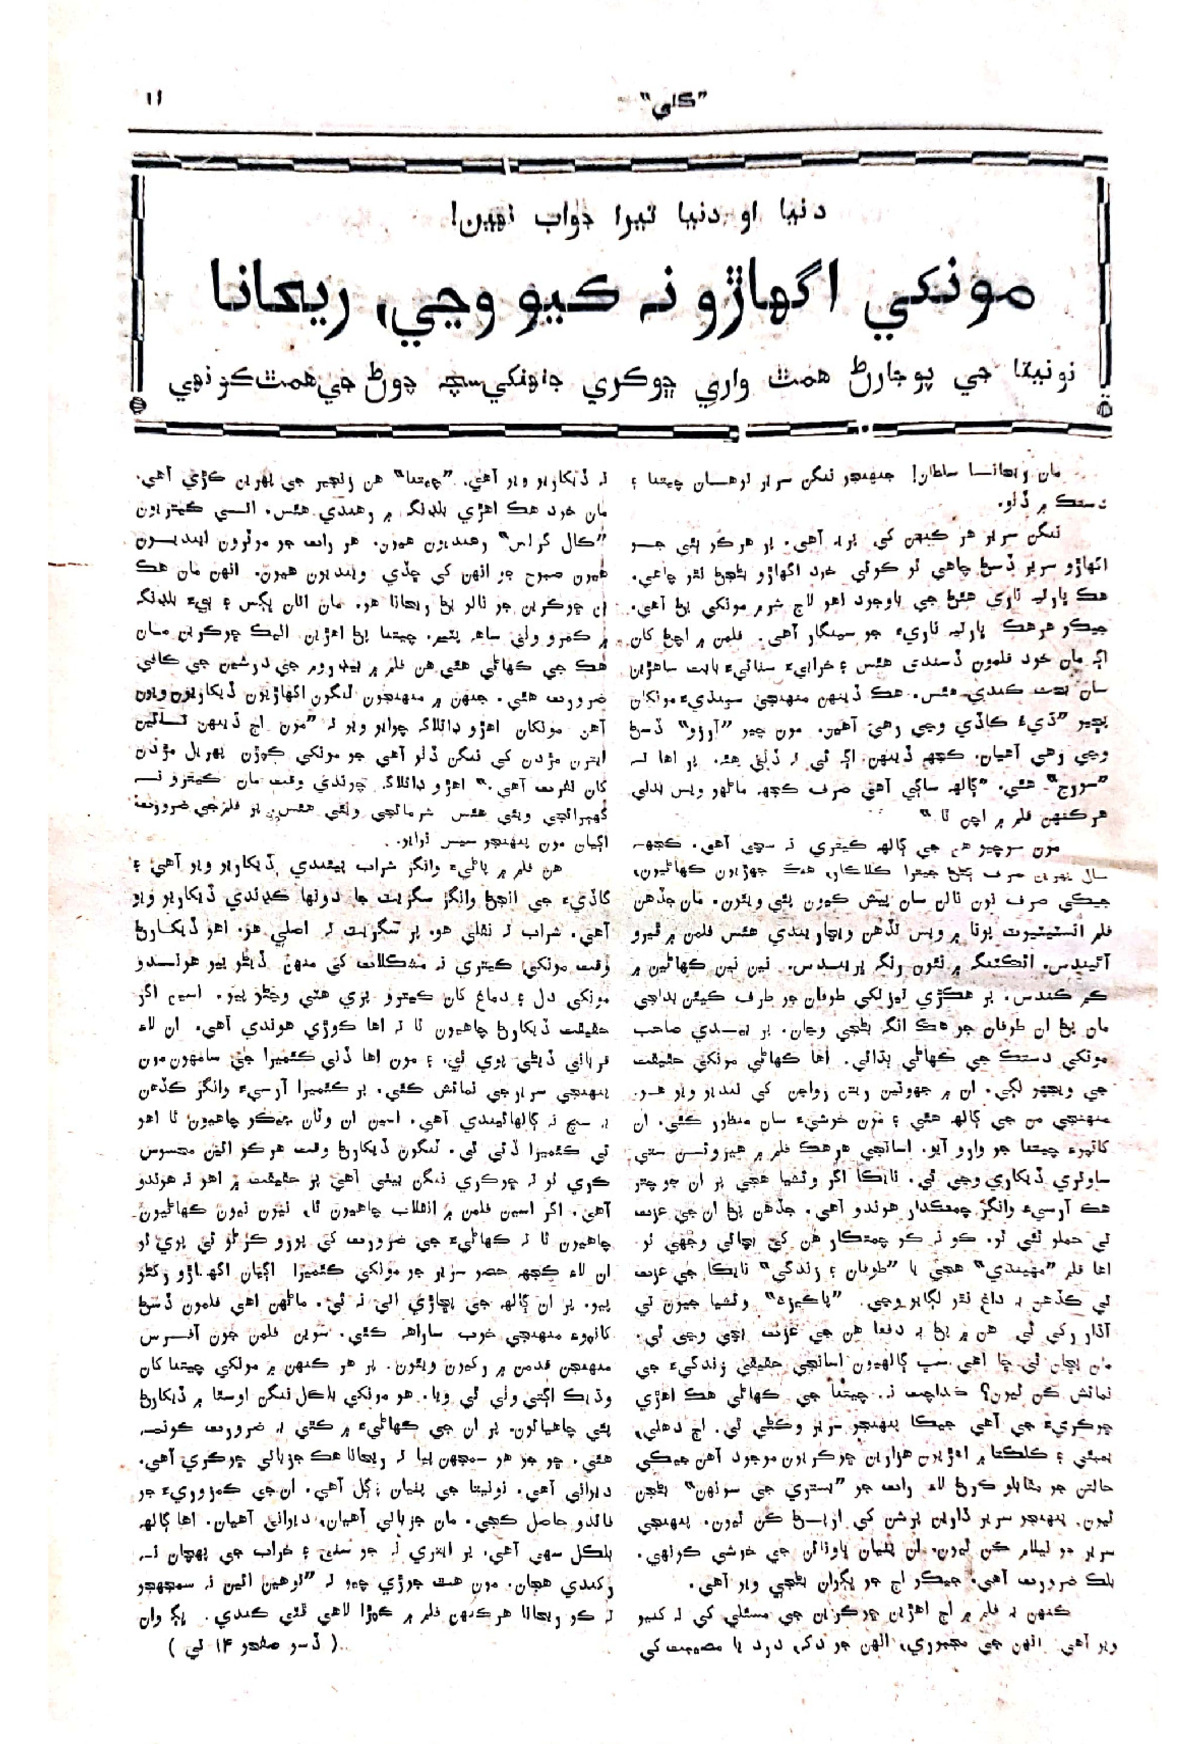 "ڪلي"
۱۱
دنيا او دنيا تيرا جواب نهين!
مونکي اگهاڙو نہ ڪيو وڃي، ريحانا
نونيتا جي پوڄارڻ همٿ واري ڇوڪري جنهنکي سچ چوڻ جي همٿ ڪو نهي
مان ريحانا سلطان! جنهنجو ننگن سرير توهسان چيتنا ۽
دستڪ ۾ ڏٺو.
ننگن سرير هر ڪنهن کي پريہ آهي. پر هر ڪو ٻئي جو
اگهاڙو سرير ڏسڻ چاهي ٿو ڪوئي خود اگهاڙو ٿيڻ نٿو چاهي.
هڪ ڀارتيہ ناري هئڻ جي باوجود اهو لاڄ شرم مونکي بہ آهي.
جيڪو هر هڪ ڀارتيہ ناريءَ جو سينگار آهي. فلمن ۾ اچڻ کان
اڳ مان خود فلمون ڏسندي هئس ۽ خرابيءَ سٺائيءَ بابت ساهڙين
سان بحث ڪندي هئس. هڪ ڏينهن منهنجي سهيليءَ مونکان
پڇيو "ڌيءَ ڪاڏي وڃي رهي آهين. مون چيو "آرزو" ڏسڻ
وڃي رهي آهيان. ڪجهہ ڏينهن اڳ ئي تہ ڏٺي هئم. پر اها تہ
"سورج" هئي. ڳالهہ ساڳي آهي صرف ڪجهہ ماڻهو ويس بدلي
هر ڪنهن فلم ۾ اچن ٿا."
مون سوچيو هن جي ڳالهہ ڪيتري نہ سچي آهي. ڪجهہ
سال پهرين صرف ٻڌڻ جيترا ڪلاڪار، هڪ جهڙيون ڪهاڻيون،
جيڪي صرف نون نالن سان پيش ڪيون پئي ويئون. مان جڏهن
فلم انسٽيٽيوٽ پونا ۾ ويس تڏهن ويچاريندي هئس فلمن ۾ ڦيرو
آڻينديس. ائڪٽنگ ۾ نئون رنگ ڀرينديس. نين نين ڪهاڻين ۾
ڪم ڪندس. پر هڪڙي تيز لڪي طوفان جو طرف ڪيئن بدلجي
مان بہ ان طوفان جو هڪ انگ بڻجي ويان. پر بيدي صاحب
مونکي دستڪ جي ڪهاڻي ٻڌائي. اها ڪهاڻي مونکي حقيقت
جي ويجهو لڳي. ان ۾ جهوٺين ريتن رواجن کي ننديو ويو هو.
منهنجي من جي ڳالهہ هئي ۽ مون خوشيءَ سان منظور ڪئي. ان
کانپوءِ چيتنا جو وارو آيو. اسانجي هر هڪ فلم ۾ هيروئن ستي
ساوتري ڏيکاري وڃي ٿي. نائڪا اگر ويشيا هجي پر ان جو چتر
هڪ آرسيءَ وانگر چمڪدار هوندو آهي. جڏهن بہ ان جي عزت
تي حملو ٿئي ٿو. ڪو نہ ڪو چمتڪار هن کي بچائي وجهي ٿو.
اها فلم "مهيندي" هجي يا "طوفان ۽ زندگي" نائڪا جي عزت
تي ڪڏهن بہ داغ نٿو لڳايو وڃي. "پاڪيزه" ويشيا جيون تي
آڌار رکي ٿي هن ۾ بہ ٻہ دفعا هن جي عزت بچي وڃي ٿي.
مان پڇان ٿي ڇا اهي سڀ ڳالهيون اسانجي حقيقي زندگيءَ جي
نمائش ڪن ٿيون؟ ڪداچت نہ. چيتنا جي ڪهاڻي هڪ اهڙي
ڇوڪريءَ جي آهي جيڪا پنهنجو سرير وڪڻي ٿي. اڄ دهلي،
بمبئي ۽ ڪلڪتا ۾ اهڙيون هزارين ڇوڪريون موجود آهن جيڪي
حالتن جو مقابلو ڪرڻ لاءِ رات جو "بستري جي سونهن" بڻجن
ٿيون. پنهنجو سرير ڌارين پرشن کي ارپڻ ڪن ٿيون. پنهنجي
سرير جو نيلام ڪن ٿيون. ان پٺيان ڀاونائن جي خوشي ڪونهي.
بلڪ ضرورت آهي. جيڪو اڄ جو ڀڳوان بڻجي ويو آهي.
ڪنهن بہ فلم ۾ اڄ اهڙين ڇوڪرين جي مسئلي کي نہ کنيو
ويو آهي. انهن جي مجبوري، انهن جو دک، درد يا مصيبت کي
نہ ڏيکاريو ويو آهي. "چيتنا" هن زنجير جي پهرين ڪڙي آهي.
مان خود هڪ اهڙي بلڊنگ ۾ رهندي هئس. اتي ڪيتريون
"ڪال گرلس" رهنديون هيون. هر رات جو موٽرون اينديون
هيون صبوح جو انهن کي ڇڏي وينديون هيون. انهن مان هڪ
ان ڇوڪرين جو نالو بہ ريحانا هو. مان اتان ڀڳس ۽ ٻيءَ بلڊنگ
۾ ڪمرو وٺي ساهہ پٽيم. چيتنا بہ اهڙين انيڪ ڇوڪرين مان
هڪ جي ڪهاڻي هئي هن فلم ۾ بيڊروم جي درشين جي ڪافي
ضرورت هئي. جنهن ۾ منهنجون ٽنگون اگهاڙيون ڏيکاريون ويون
آهن مونکان اهڙو ڊائلاگ چوايو ويو تہ "مون اڄ ڏينهن تائين
ايترن مڙدن کي ننگن ڏٺو آهي جو مونکي ڪپڙن پهريل مڙدن
کان نفرت آهي." اهڙو ڊائلاگ چوندي وقت مان ڪيترو نہ
گهبرائجي ويئي هئس شرمائجي ويئي هئس. پر فلم جي ضرورت
اڳيان مون پنهنجو سيس نوايو.
هن فلم ۾ پاڻيءَ وانگر شراب پيئندي ڏيکاريو ويو آهي ۽
گاڏيءَ جي انجڻ وانگر سگريٽ جا دونها ڪڍندي ڏيکاريو ويو
آهي. شراب تہ نقلي هو. پر سگريٽ تہ اصلي هو. اهو ڏيکارڻ
وقت مونکي ڪيتري نہ مشڪلات کي منهن ڏيڻو پيو هوندو
مونکي دل ۽ دماغ کان ڪيترو پري هٽي وڃڻو پيو. اسين اگر
حقيقت ڏيکارڻ چاهيون ٿا تہ اها ڪوڙي هوندي آهي. ان لاءِ
قرباني ڏيڻي پوي ٿي، ۽ مون اها ڏني ڪئميرا جي سامهون مون
پنهنجي سرير جي نمائش ڪئي. پر ڪئميرا آرسيءَ وانگر ڪڏهن
بہ سچ نہ ڳالهائيندي آهي. اسين ان وٽان جيڪو چاهيون ٿا اهو
ئي ڪئميرا ڏئي ٿي. ٽنگون ڏيکارڻ وقت هرڪو ائين محسوس
ڪري ٿو تہ ڇوڪري ننگن بيٺي آهي پر حقيقت ۾ اهو نہ هوندو
آهي. اگر اسين فلمن ۾ انقلاب چاهيون ٿا، نيون نيون ڪهاڻيون
چاهيون ٿا تہ ڪهاڻيءَ جي ضرورت کي پورو ڪرڻو ئي پوي ٿو
ان لاءِ ڪجهہ حصو سرير جو مونکي ڪئميرا اڳيان اگهاڙو رکڻو
پيو. پر ان ڳالهہ جي پڇاڙي اتي نہ ٿي. ماڻهن اهي فلمون ڏسڻ
کانپوءِ منهنجي خوب ساراهہ ڪئي. سوين فلمن جون آفرس
منهنجن قدمن ۾ رکيون ويئون. پر هر ڪنهن ۾ مونکي چيتنا کان
وڌيڪ اڳتي وٺي ٿي ويا. هو مونکي بلڪل ننگن اوسٿا ۾ ڏيکارڻ
پئي چاهيائون. پر ان جي ڪهاڻيءَ ۾ ڪٿي بہ ضرورت ڪونہ
هئي. ڇو جو هو سمجهن پيا تہ ريحانا هڪ جزباتي ڇوڪري آهي.
ديواني آهي. نونيتا جي پٺيان پاڳل آهي. ان جي ڪمزوريءَ جو
فائدو حاصل ڪجي. مان جزباتي آهيان، ديواني آهيان. اها ڳالهہ
بلڪل سهي آهي. پر ايتري نہ جو سٺي ۽ خراب جي پهچان نہ
رکندي هجان. مون هٿ جوڙي چيو تہ "توهين ائين نہ سمجهجو
تہ ڪو ريحانا هر ڪنهن فلم ۾ ڪپڙا لاهي ڦٽي ڪندي. ڀڳوان
( ڏسو صفحو ۱۴ تي )